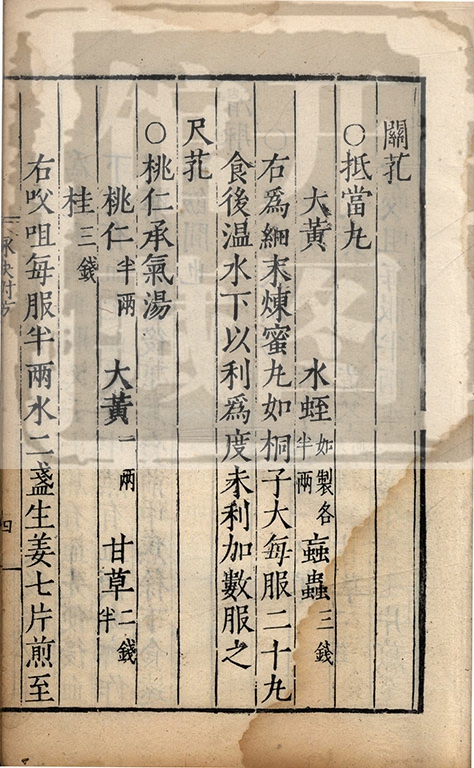 關芤
○抵當丸
大黃 水蛭如製各半兩 䖟蟲三錢
右爲細末煉蜜丸如桐子大每服二十丸
食後温水下以利爲度未利加數服之
尺芤
○桃仁承氣湯
桃仁半兩 大黃一兩 甘草二錢半
桂三錢
右㕮咀每服半兩水二盞生姜七片煎至
四